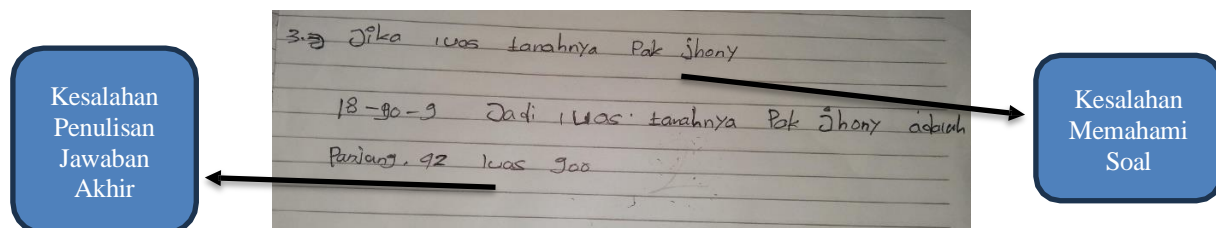 Kesalahan
Penulisan
Jawaban
Akhir
3. Jika luas tanahnya Pak jhony
18-90-9 Jadi luas tanahnya Pak Jhony adalah
Panjang. 92 luas 900
Kesalahan
Memahami
Soal